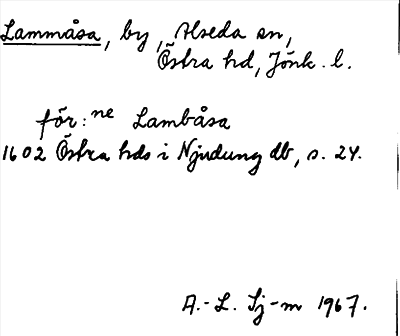 Lammåsa, by, Alseda sn,
Östra hd, Jönk. l.
för: ne Lambåsa
1602 Östra hds i Njudung db, s. 24.
A.-L. Sj-m 1967.